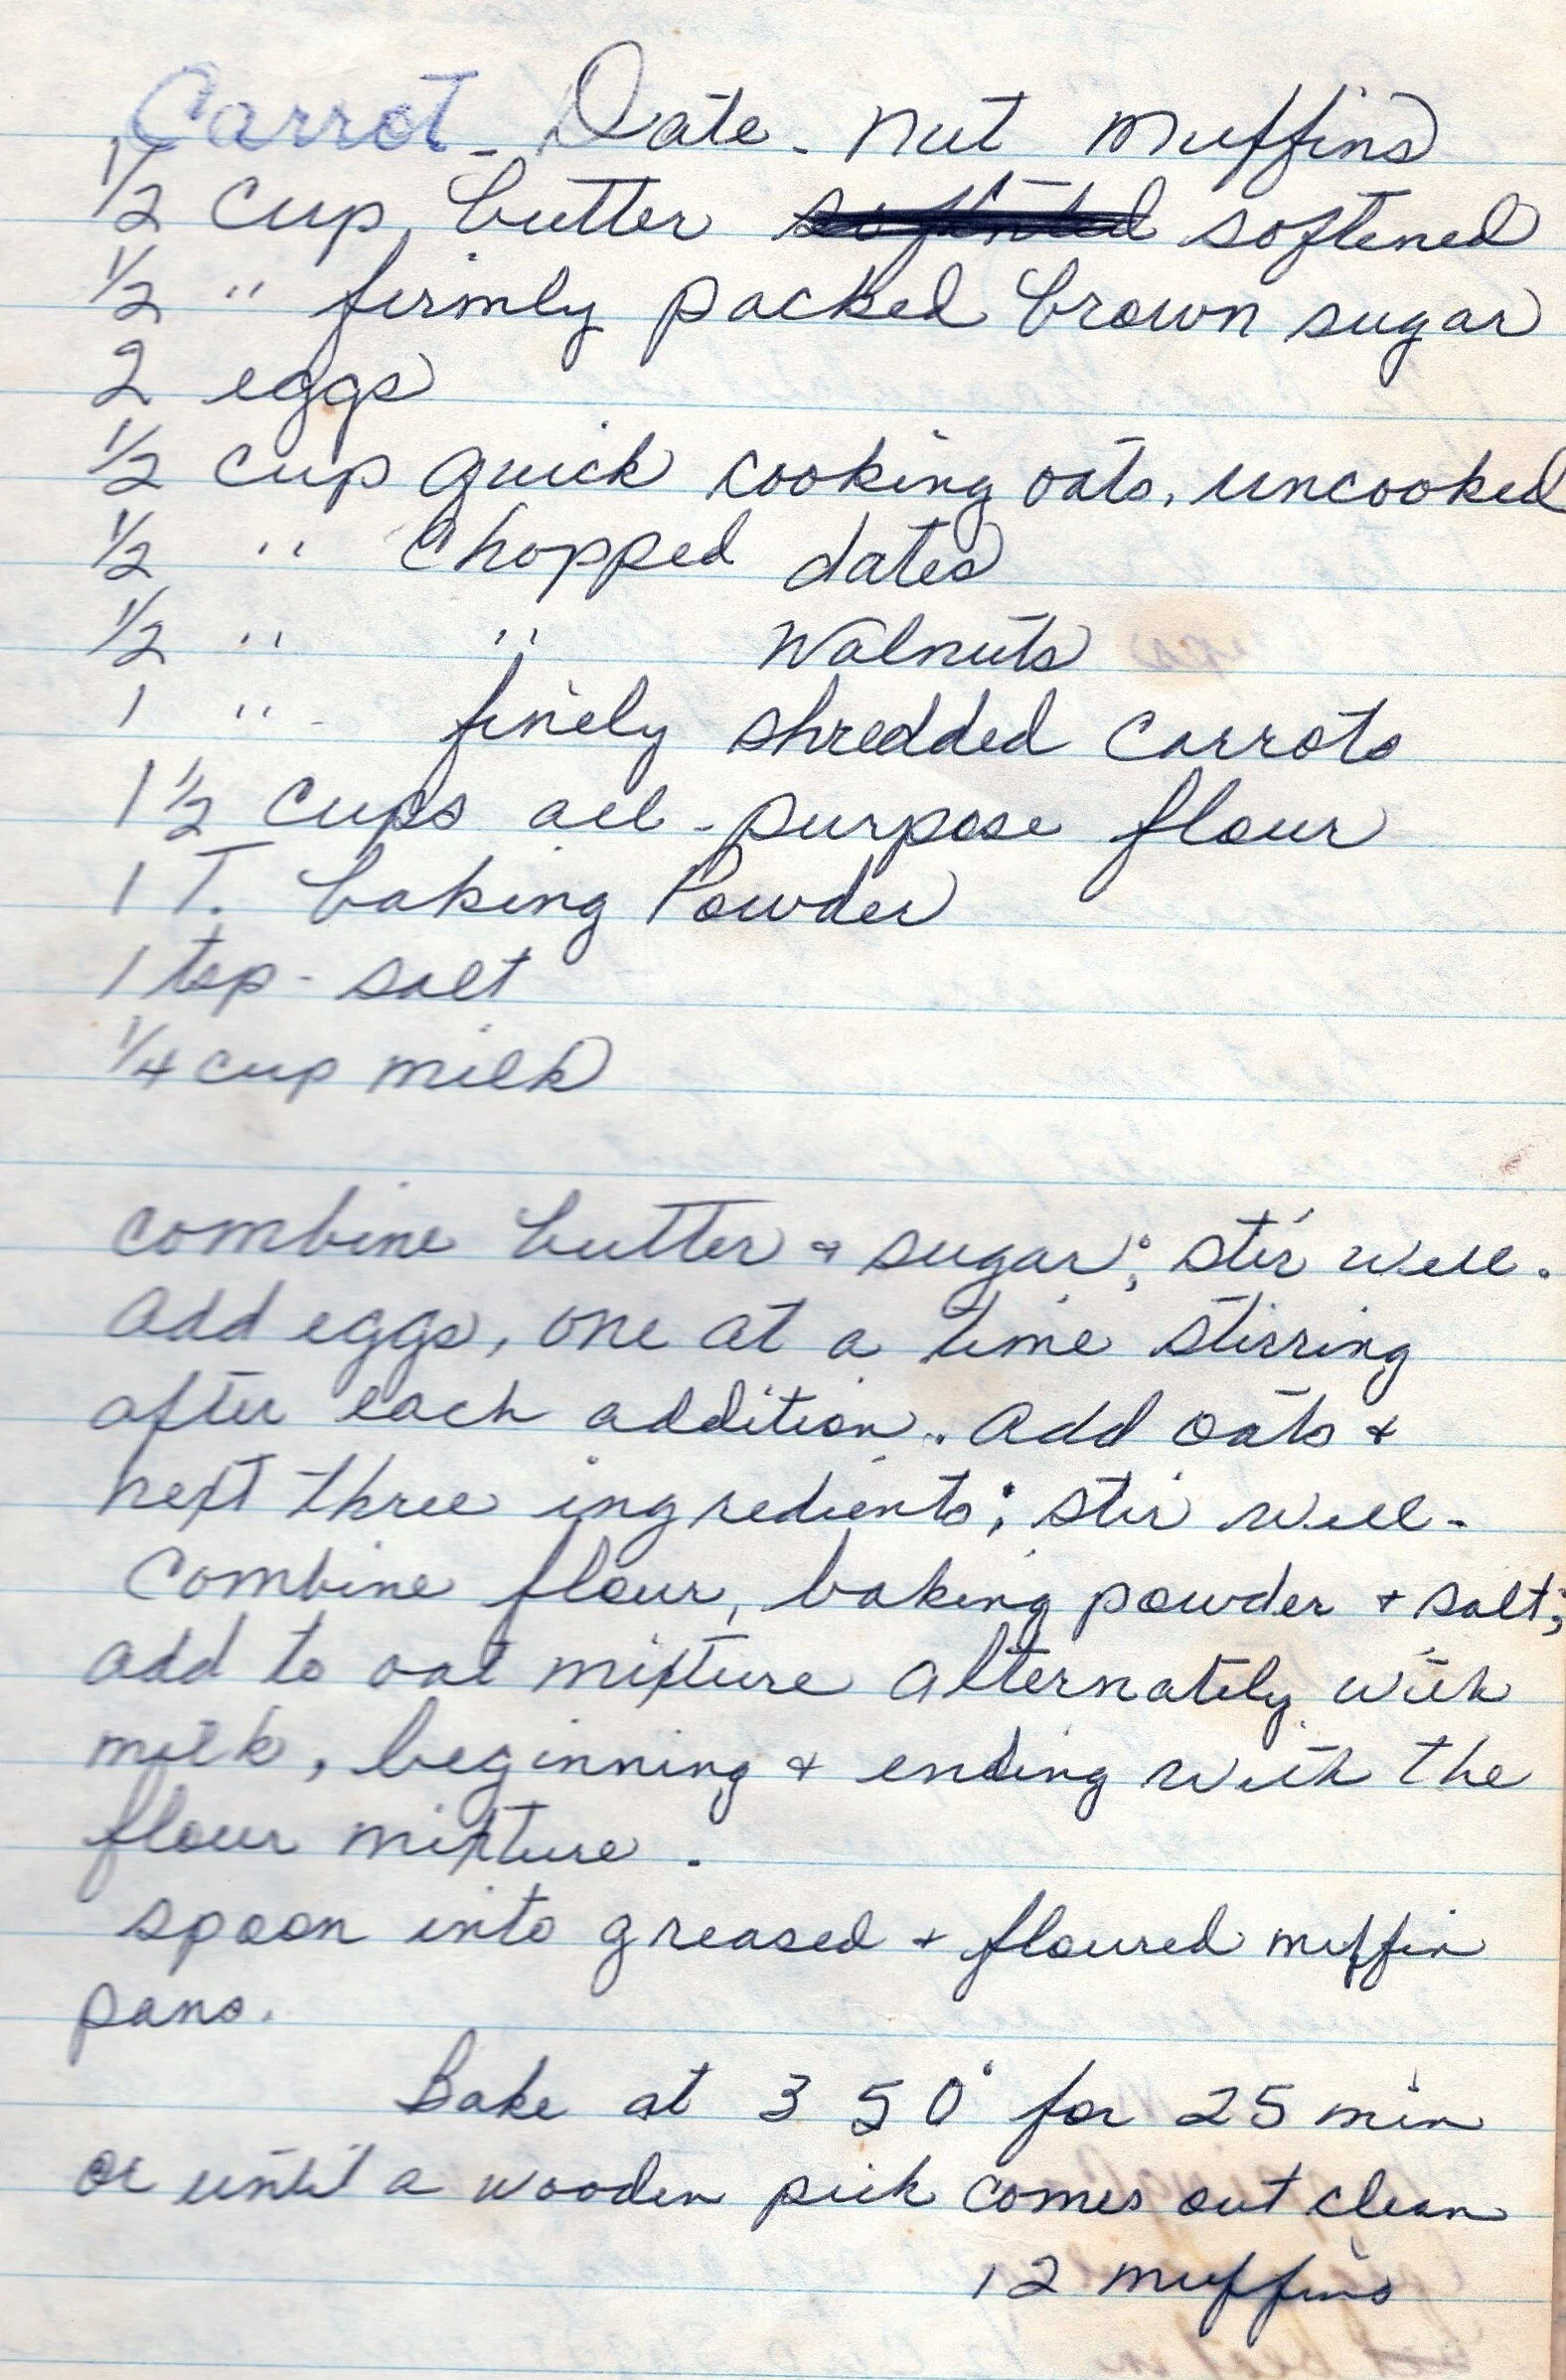 Carrot - Date - Nut Muffins
1/2 cup butter softened
1/2 " firmly packed brown sugar
2 eggs
1/2 cup quick cooking oats, uncooked
1/2 " chopped dates
1/2 " " walnuts
1 " finely shredded carrots
1 1/2 cups all-purpose flour
1 T. baking Powder
1 tsp - salt
1/4 cup milk
combine butter & sugar; stir well.
add eggs, one at a time stirring
after each addition. add oats &
next three ingredients; stir well -
Combine flour, baking powder & salt;
add to oat mixture alternately with
milk, beginning & ending with the
flour mixture.
spoon into greased & floured muffin
pans.
Bake at 350° for 25 min
or until a wooden pick comes out clean
12 muffins